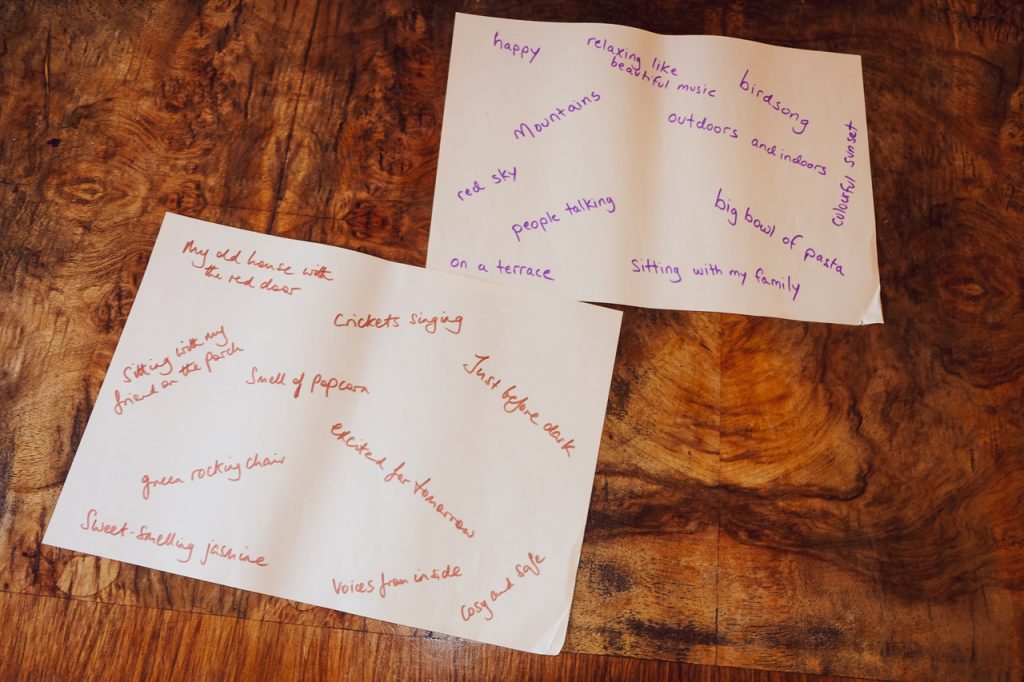 happy
relaxing like
beautiful music
birdsong
Mountains
outdoors and indoors
colourful sunset
red sky
people talking
big bowl of pasta
on a terrace
sitting with my family
My old house with
the red door
Crickets singing
Sitting with my
friend on the porch
Smell of popcorn
Just before dark
excited for tomorrow
green rocking chair
Sweet-smelling jasmine
Voices from inside
cosy and safe